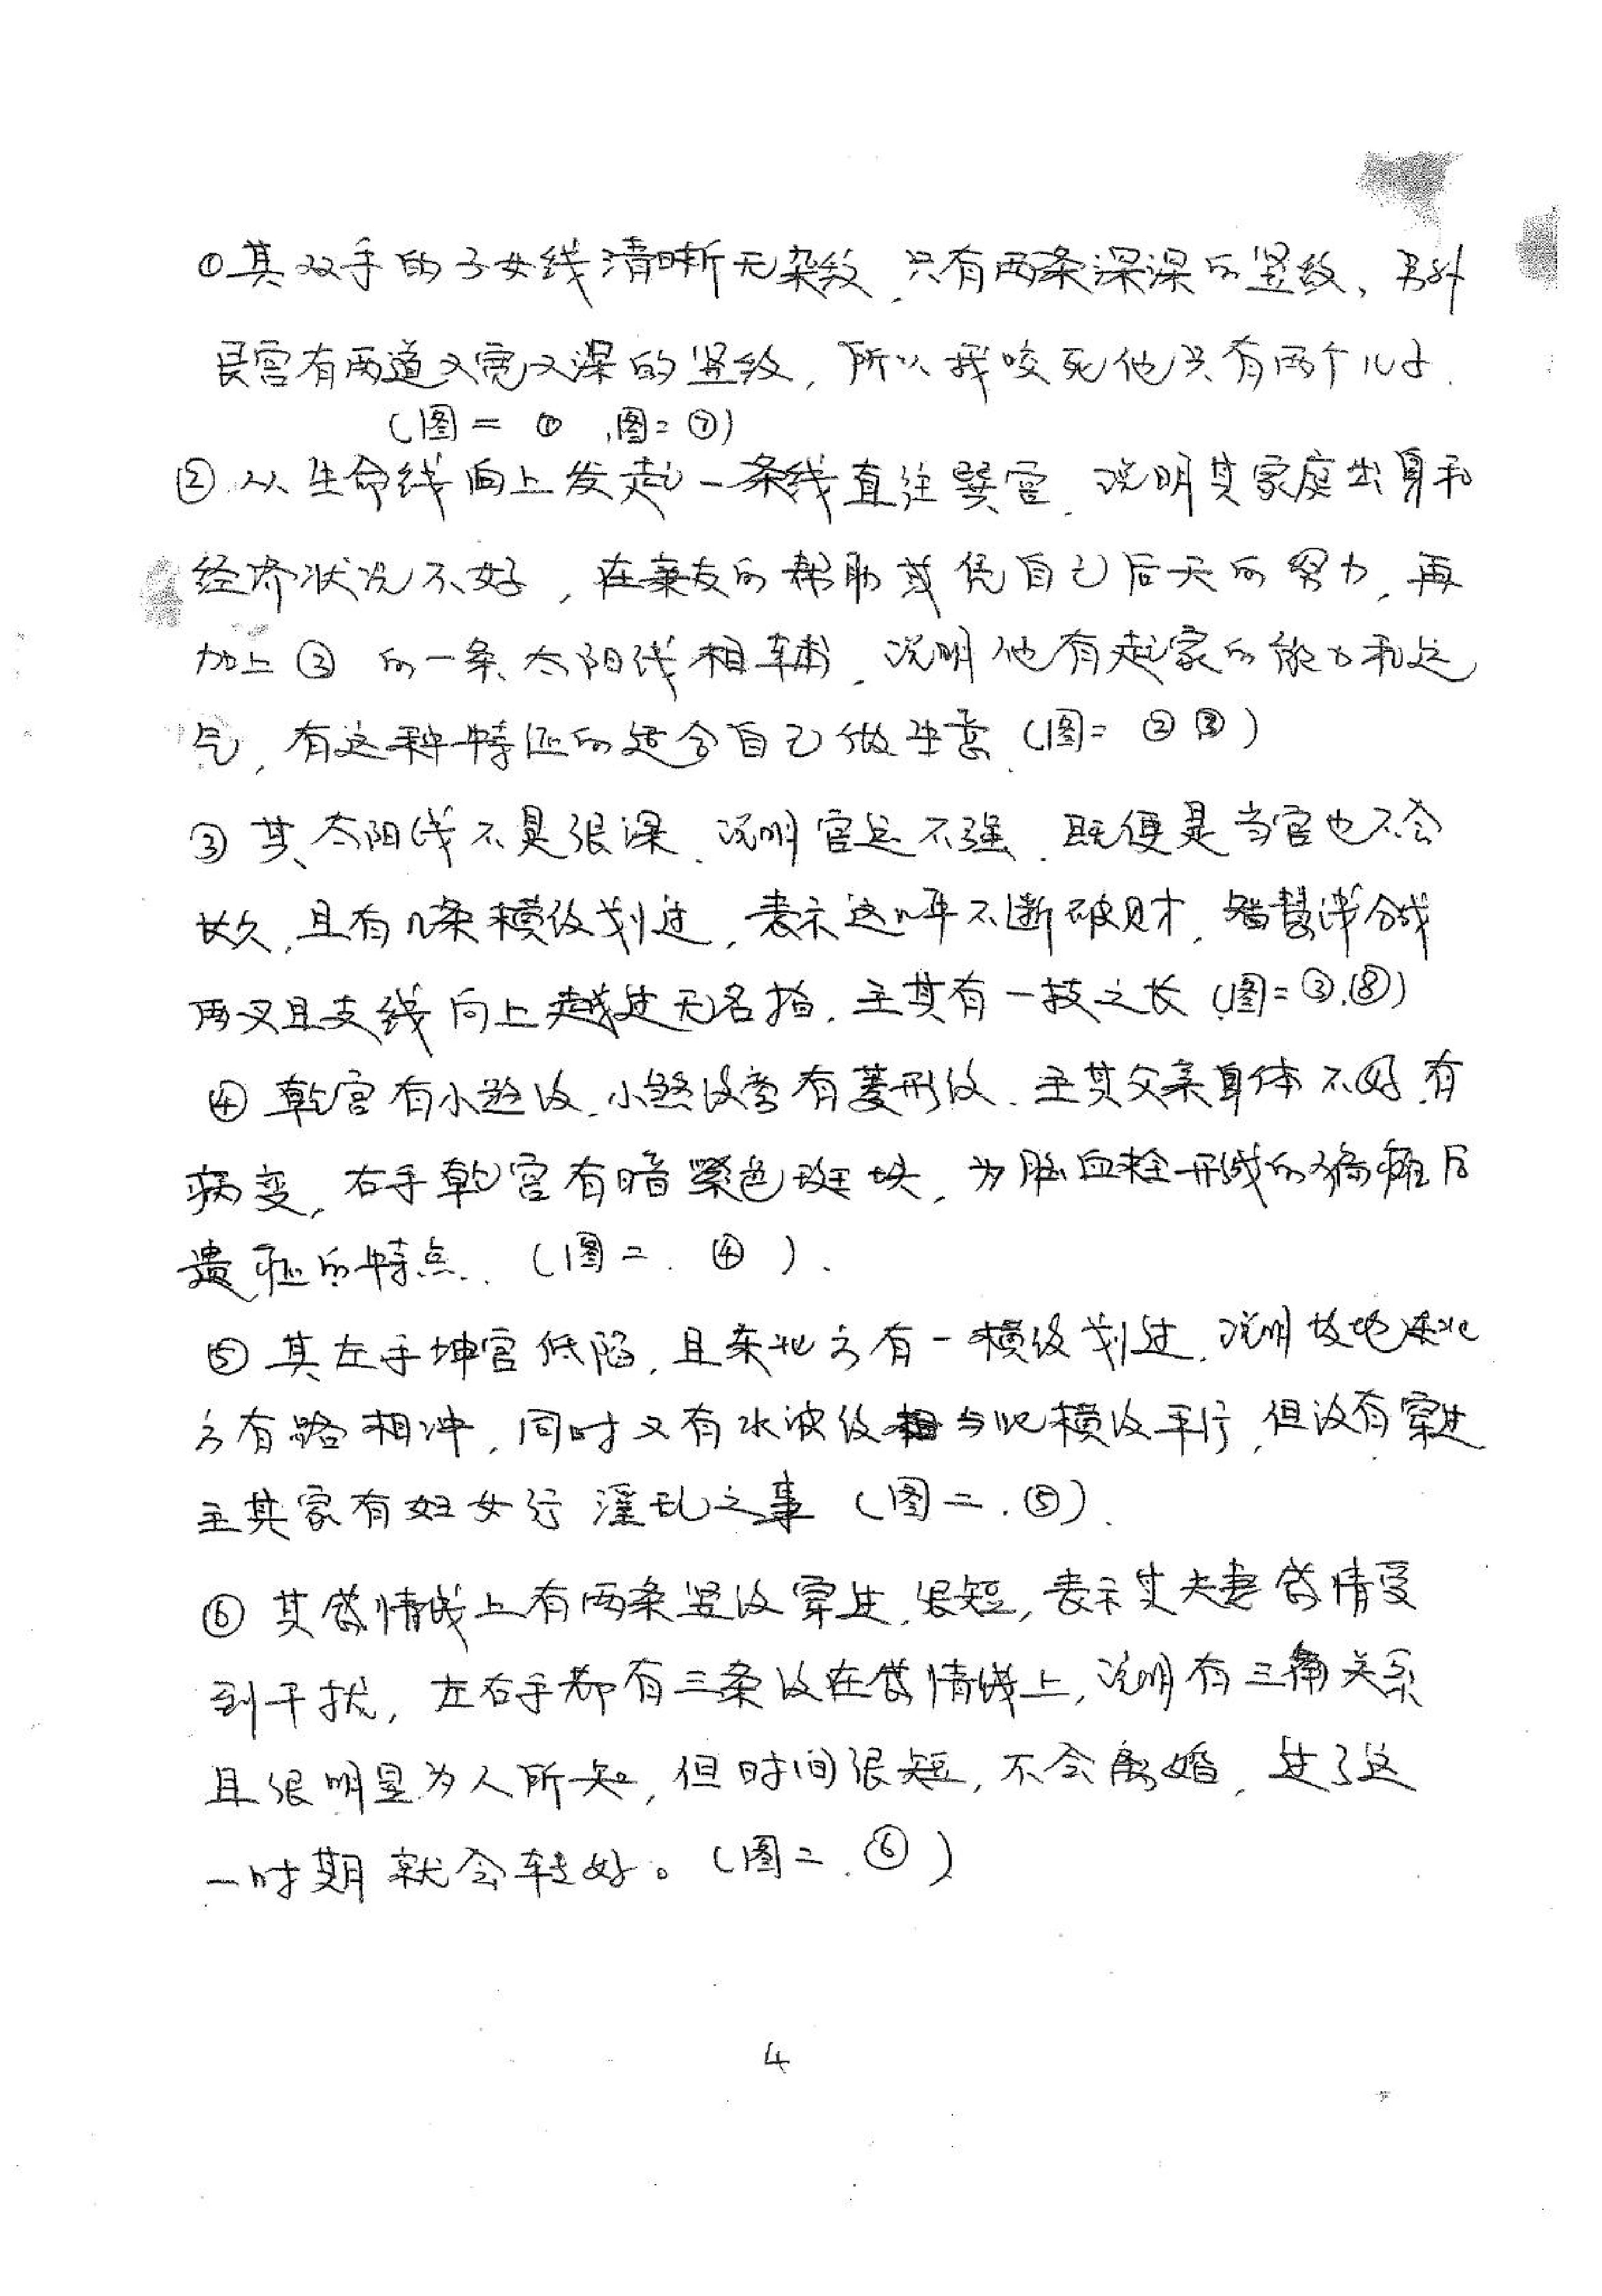 ①其双手的子女线清晰无杂纹,只有两条深深的竖纹、另外
艮宫有两道又宽又深的竖纹,所以我咬死他只有两个儿子.
(图二 ①,图二⑦)
②.从生命线向上发起一条线直往巽宫.说明其家庭出身和
经济状况不好,在亲友的帮助或凭自己后天的努力,再
加上③的一条太阳线相辅.说明他有起家的能力和运
气,有这种特征的适合自己做生意.(图二 ②③)
③其太阳线不是很深、说明官运不强.既便是当官也不会
长久,且有几条横纹划过,表示这几年不断破财.智慧线分成
两叉且支线向上越过无名指.主其有一技之长(图二③.⑧)
④乾宫有小煞纹.小煞纹旁有菱形纹.主其父亲身体不好.有
病变,右手乾宫有暗紫色斑块,为脑血栓形成的偏瘫后
遗症的特点..(图二.④).
⑤其左手坤宫低陷,且东北方有一横纹划过.说明坟地东北
方有路相冲,同时又有水波纹与此横纹平行,但没有穿过
主其家有妇女行淫乱之事(图二.⑤).
⑥其感情线上有两条竖纹穿过,很短,表示丈夫妻感情受
到干扰,左右手都有三条纹在感情线上,说明有三角关系
且很明显为人所知,但时间很短,不会离婚,过了这
一时期就会转好。(图二.⑥)
4